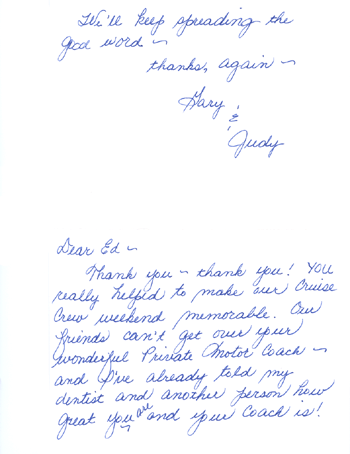 We'll keep spreading the
good word ~
thanks, again ~
Gary
&
Judy
Dear Ed ~
Thank you ~ thank you! YOU
really helped to make our Cruise
Crew weekend memorable. Our
friends can't get over your
wonderful Private Motor Coach ~
and I've already told my
dentist and another person how
great you are and your Coach is!